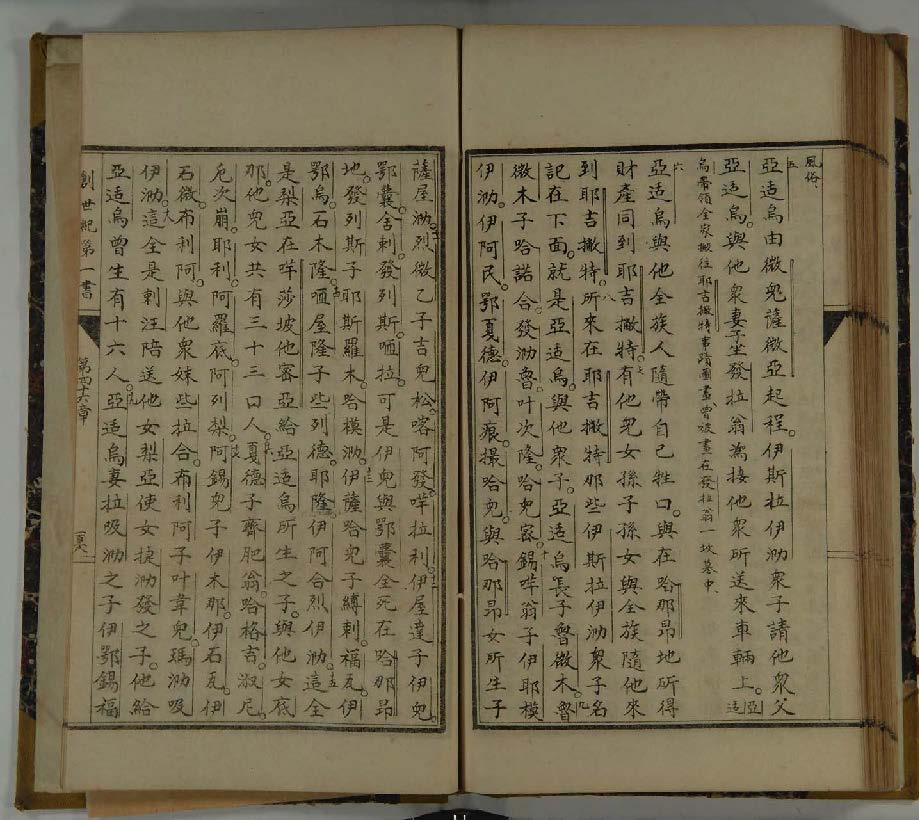 風俗、
五亞适烏由微皃薩微亞起程。伊斯拉伊泐衆子請他衆父
亞适烏。與他衆妻子坐發拉翁為接他衆所送來車輛上。亞适
烏帶領全家搬往耶吉撇特事蹟圖畫曾被畫在發拉翁一坟墓中、
六亞适烏與他全族人隨帶自己牲口。與在哈那昂地所得
財產同到耶吉撇特。七有他兒女孫子孫女與全族隨他來
到耶吉撇特。八所來在耶吉撇特那些伊斯拉伊泐衆子名
記在下面。就是亞适烏。與他衆子。亞适烏長子魯微木。九魯
微木子哈諾合。發泐魯。叶次隆。哈皃客。十錫咩翁子伊耶模
伊泐。伊阿民。鄂戛德。伊阿痕。撮哈皃。與哈那昂女所生子
薩屋泐。十一烈微乙子吉皃松。喀阿發。咩拉利。十二伊屋達子伊皃。
鄂囊。舍剌。發列斯。哂拉。可是伊皃與鄂囊全死在哈那昂
地。發列斯子耶斯羅木。哈模泐。十三伊薩哈皃子縛剌。福瓦。伊
鄂烏。石木隆。十四哂屋隆子些列德。耶隆。伊阿合烈伊泐。十五這全
是梨亞在咩莎坡他密亞給亞适烏所生之子。與他女底
那。他兒女共有三十三口人。十六戛德子齊肥翁。哈格吉。淑尼。
厄次崩。耶利。阿羅底。阿列梨。十七阿錫皃子伊木那。伊石瓦。伊
石微。布利阿。與他衆妹些拉合。布利阿子叶韋皃。瑪泐吸
伊泐。十八這全是剌汪陪送他女梨亞使女捷泐發之子。他給
亞适烏曾生有十六人。十九亞适烏妻拉吸泐之子伊鄂錫福
創世紀第一書
第四十六章